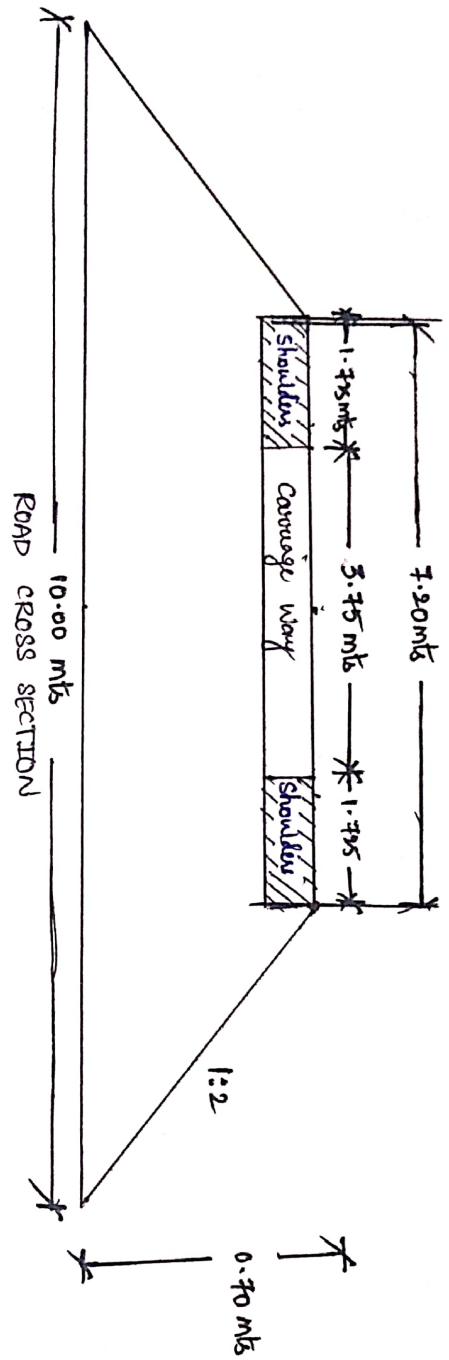 7.20 mts
1.725 mts
3.75 mts
1.725
Shoulders
Carriage Way
Shoulders
1:2
0.70 mts
10.00 mts
ROAD CROSS SECTION